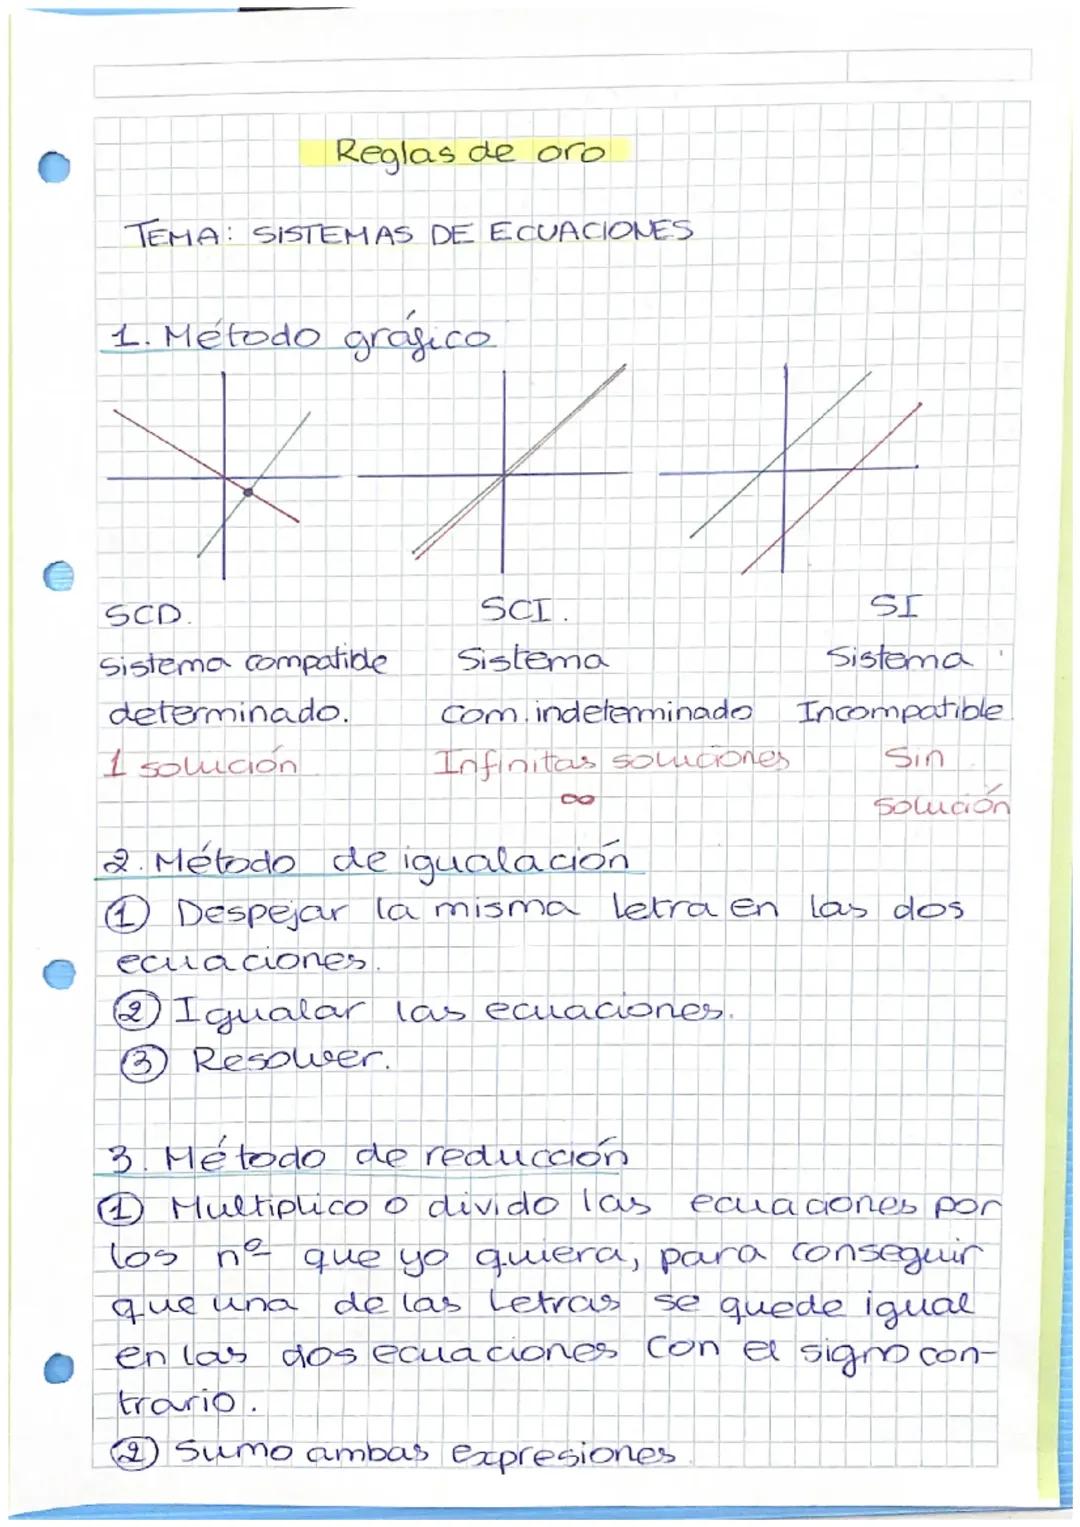 Reglas de oro
TEMA: SISTEMAS DE ECUACIONES
1. Método gráfico
SCD. SCI. SI
sistema compatible Sistema Sistema
determinado. com. indeterminado Incompatible
1 solución Infinitas soluciones Sin
∞ solución
2. Método de igualación
① Despejar la misma letra en las dos
ecuaciones.
② Igualar las ecuaciones.
③ Resolver.
3. Método de reducción
① Multiplico o divido las ecuaciones por
los nº que yo quiera, para conseguir
que una de las letras se quede igual
en las dos ecuaciones con el signo con-
trario.
② Sumo ambas expresiones.